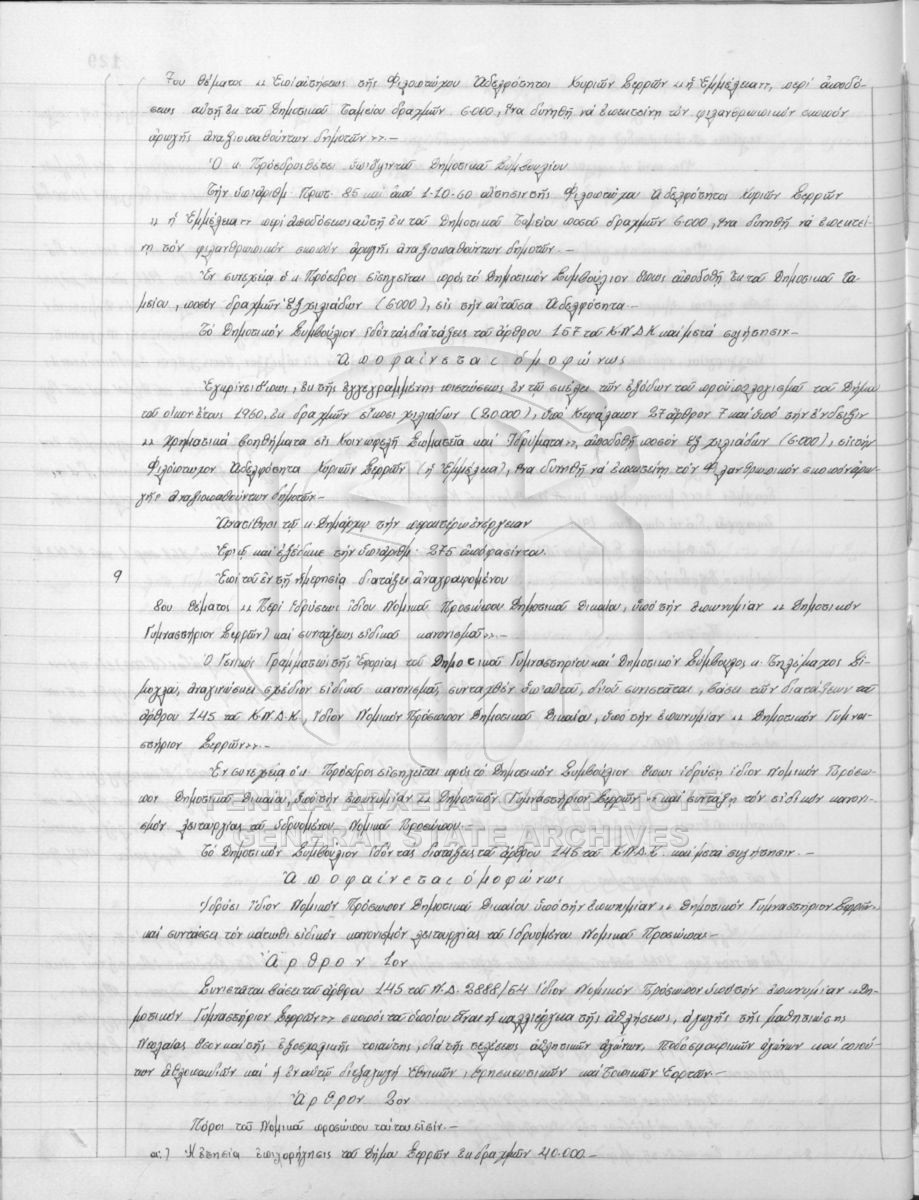 7ου θέματος « Ἐπί αἰτήσεως τῆς Φιλοπτώχου Ἀδελφότητος Κυριῶν Σερρῶν « ἡ Ἐμμέλεια», περί ἀποδό-
σεως αὐτῇ ἐκ τοῦ Δημοτικοῦ Ταμείου δραχμῶν 6.000, ἵνα δυνηθῇ νά ἐπεκτείνῃ τόν φιλανθρωπικόν σκοπόν
ἀρωγῆς ἀναξιοπαθούντων δημοτῶν».-
Ὁ κ. Πρόεδρος θέτει ὑπ' ὄψιν τοῦ Δημοτικοῦ Συμβουλίου
Τήν ὑπ' ἀριθμ Πρωτ. 85 καί ἀπό 1-10-60 αἴτησιν τῆς Φιλοπτώχου Ἀδελφότητος Κυριῶν Σερρῶν
« ἡ Ἐμμέλεια» περί ἀποδόσεως αὐτῇ ἐκ τοῦ Δημοτικοῦ Ταμείου ποσοῦ δραχμῶν 6.000, ἵνα δυνηθῇ νά ἐπεκτεί-
νῃ τόν φιλανθρωπικόν σκοπόν ἀρωγῆς ἀναξιοπαθούντων δημοτῶν.-
Ἐν συνεχείᾳ ὁ κ Πρόεδρος εἰσηγεῖται πρός τό Δημοτικόν Συμβούλιον ὅπως ἀποδοθῇ ἐκ τοῦ Δημοτικοῦ Τα-
μείου, ποσόν δραχμῶν ἕξ χιλιάδων (6.000), εἰς τήν αἰτοῦσα Ἀδελφότητα.-
Τό Δημοτικόν Συμβούλιον ἰδόν τάς διατάξεις τοῦ ἄρθρου 167 τοῦ Κ.Ν.Δ.Κ καί μετά συζήτησιν.-
Ἀποφαίνεται ὁμοφώνως
Ἐγκρίνει ὅπως, ἐκ τῆς ἐγγεγραμμένης πιστώσεως ἐν τῷ σκέλει τῶν ἐξόδων τοῦ προϋπολογισμοῦ τοῦ Δήμου
τοῦ οἰκον. ἔτους 1960, ἐκ δραχμῶν εἴκοσι χιλιάδων (20.000), ὑπό Κεφάλαιον 27 ἄρθρον 7 καί ὑπό τήν ἔνδειξιν
« Χρηματικά βοηθήματα εἰς Κοινωφελῆ Σωματεῖα καί Ἱδρύματα», ἀποδοθῇ ποσόν ἕξ χιλιάδων (6.000), εἰς τήν
Φιλόπτωχον Ἀδελφότητα Κυριῶν Σερρῶν (ἡ Ἐμμέλεια), ἵνα δυνηθῇ νά ἐπεκτείνῃ τόν Φιλανθρωπικόν σκοπόν ἀρω-
γῆς ἀναξιοπαθούντων δημοτῶν.-
Ἀνατίθησι τῷ κ. Δημάρχῳ τήν περαιτέρω ἐνέργειαν
Ἐφ' ᾧ καί ἐξέδωκε τήν ὑπ' ἀριθμ. 275 ἀπόφασίν του.
9 Ἐπί τοῦ ἐν τῇ ἡμερησίᾳ διατάξει ἀναγραφομένου
8ου θέματος « Περί ἱδρύσεως ἰδίου Νομικοῦ Προσώπου Δημοσίου Δικαίου, ὑπό τήν ἐπωνυμίαν « Δημοτικόν
Γυμναστήριον Σερρῶν) καί συντάξεως εἰδικοῦ κανονισμοῦ».-
Ὁ Γενικός Γραμματεύς τῆς Ἐφορίας τοῦ Δημοτικοῦ Γυμναστηρίου καί Δημοτικός Σύμβουλος κ. Τηλέμαχος Σι-
μογλου, ἀναγινώσκει σχέδιον εἰδικοῦ κανονισμοῦ, συνταχθέν ὑπ' αὐτοῦ, δι' οὗ συνιστᾶται, βάσει τῶν διατάξεων τοῦ
ἄρθρου 145 τοῦ Κ.Ν.Δ.Κ, ἴδιον Νομικόν Πρόσωπον Δημοσίου Δικαίου, ὑπό τήν ἐπωνυμίαν « Δημοτικόν Γυμνα-
στήριον Σερρῶν».-
Ἐν συνεχείᾳ ὁ κ. Πρόεδρος εἰσηγεῖται πρός τό Δημοτικόν Συμβούλιον ὅπως ἱδρύσῃ ἴδιον Νομικόν Πρόσω-
πον Δημοσίου Δικαίου, ὑπό τήν ἐπωνυμίαν « Δημοτικόν Γυμναστήριον Σερρῶν» καί συντάξῃ τόν εἰδικόν κανονι-
σμόν λειτουργίας τοῦ ἱδρυομένου Νομικοῦ Προσώπου.
Τό Δημοτικόν Συμβούλιον ἰδόν τάς διατάξεις τοῦ ἄρθρου 145 τοῦ Κ.Ν.Δ.Κ. καί μετά συζήτησιν.-
Ἀποφαίνεται ὁμοφώνως
Ἱδρύει ἴδιον Νομικόν Πρόσωπον Δημοσίου Δικαίου ὑπό τήν ἐπωνυμίαν « Δημοτικόν Γυμναστήριον Σερρῶν»
καί συντάσσει τόν κάτωθι εἰδικόν κανονισμόν λειτουργίας τοῦ ἱδρυομένου Νομικοῦ Προσώπου.-
Ἄρθρον 1ον
Συνιστᾶται βάσει τοῦ ἄρθρου 145 τοῦ Ν.Δ. 2888/54 ἴδιον Νομικόν Πρόσωπον ὑπό τήν ἐπωνυμίαν «Δη-
μοτικόν Γυμναστήριον Σερρῶν» σκοπός τοῦ ὁποίου εἶναι ἡ καλλιέργεια τῆς ἀθλήσεως, ἀγωγῆς τῆς μαθητικῆς
Νεολαίας ὅσον καί τῆς ἐξωσχολικῆς τοιαύτης, διά τῆς τελέσεως ἀθλητικῶν ἀγώνων, Ποδοσφαιρικῶν ἀγώνων καί τοιού-
των ἀθλοπαιδιῶν καί ἡ ἐν αὐτῷ διεξαγωγή Ἐθνικῶν, Θρησκευτικῶν καί Τοπικῶν Ἑορτῶν.-
Ἄρθρον 2ον
Πόροι τοῦ Νομικοῦ προσώπου τούτου εἰσίν.-
α.) Ἡ ἐτησία ἐπιχορήγησις τοῦ Δήμου Σερρῶν ἐκ δραχμῶν 40.000.-
ΓΕΝΙΚΑ ΑΡΧΕΙΑ ΤΟΥ ΚΡΑΤΟΥΣ
GENERAL STATE ARCHIVES